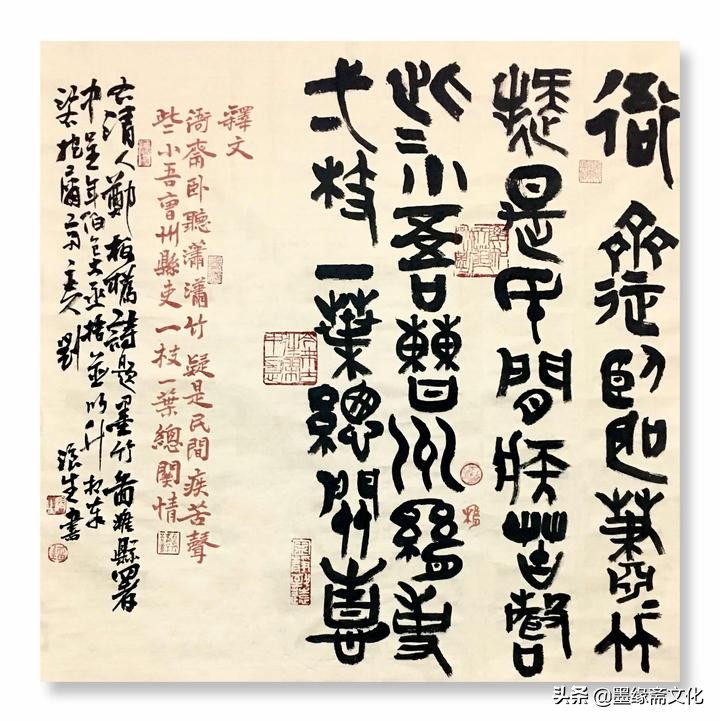 衙齋臥聽蕭蕭竹
疑是民間疾苦聲
些小吾曹州縣吏
一枝一葉總關情
釋文
衙齋卧聽瀟瀟竹疑是民間疾苦聲
些小吾曹州縣吏一枝一葉總關情
右清人鄭板橋詩題墨竹圖濰縣署
中呈年伯包大丞括並以
齋主人劉
生書
头条 @墨缘斋文化